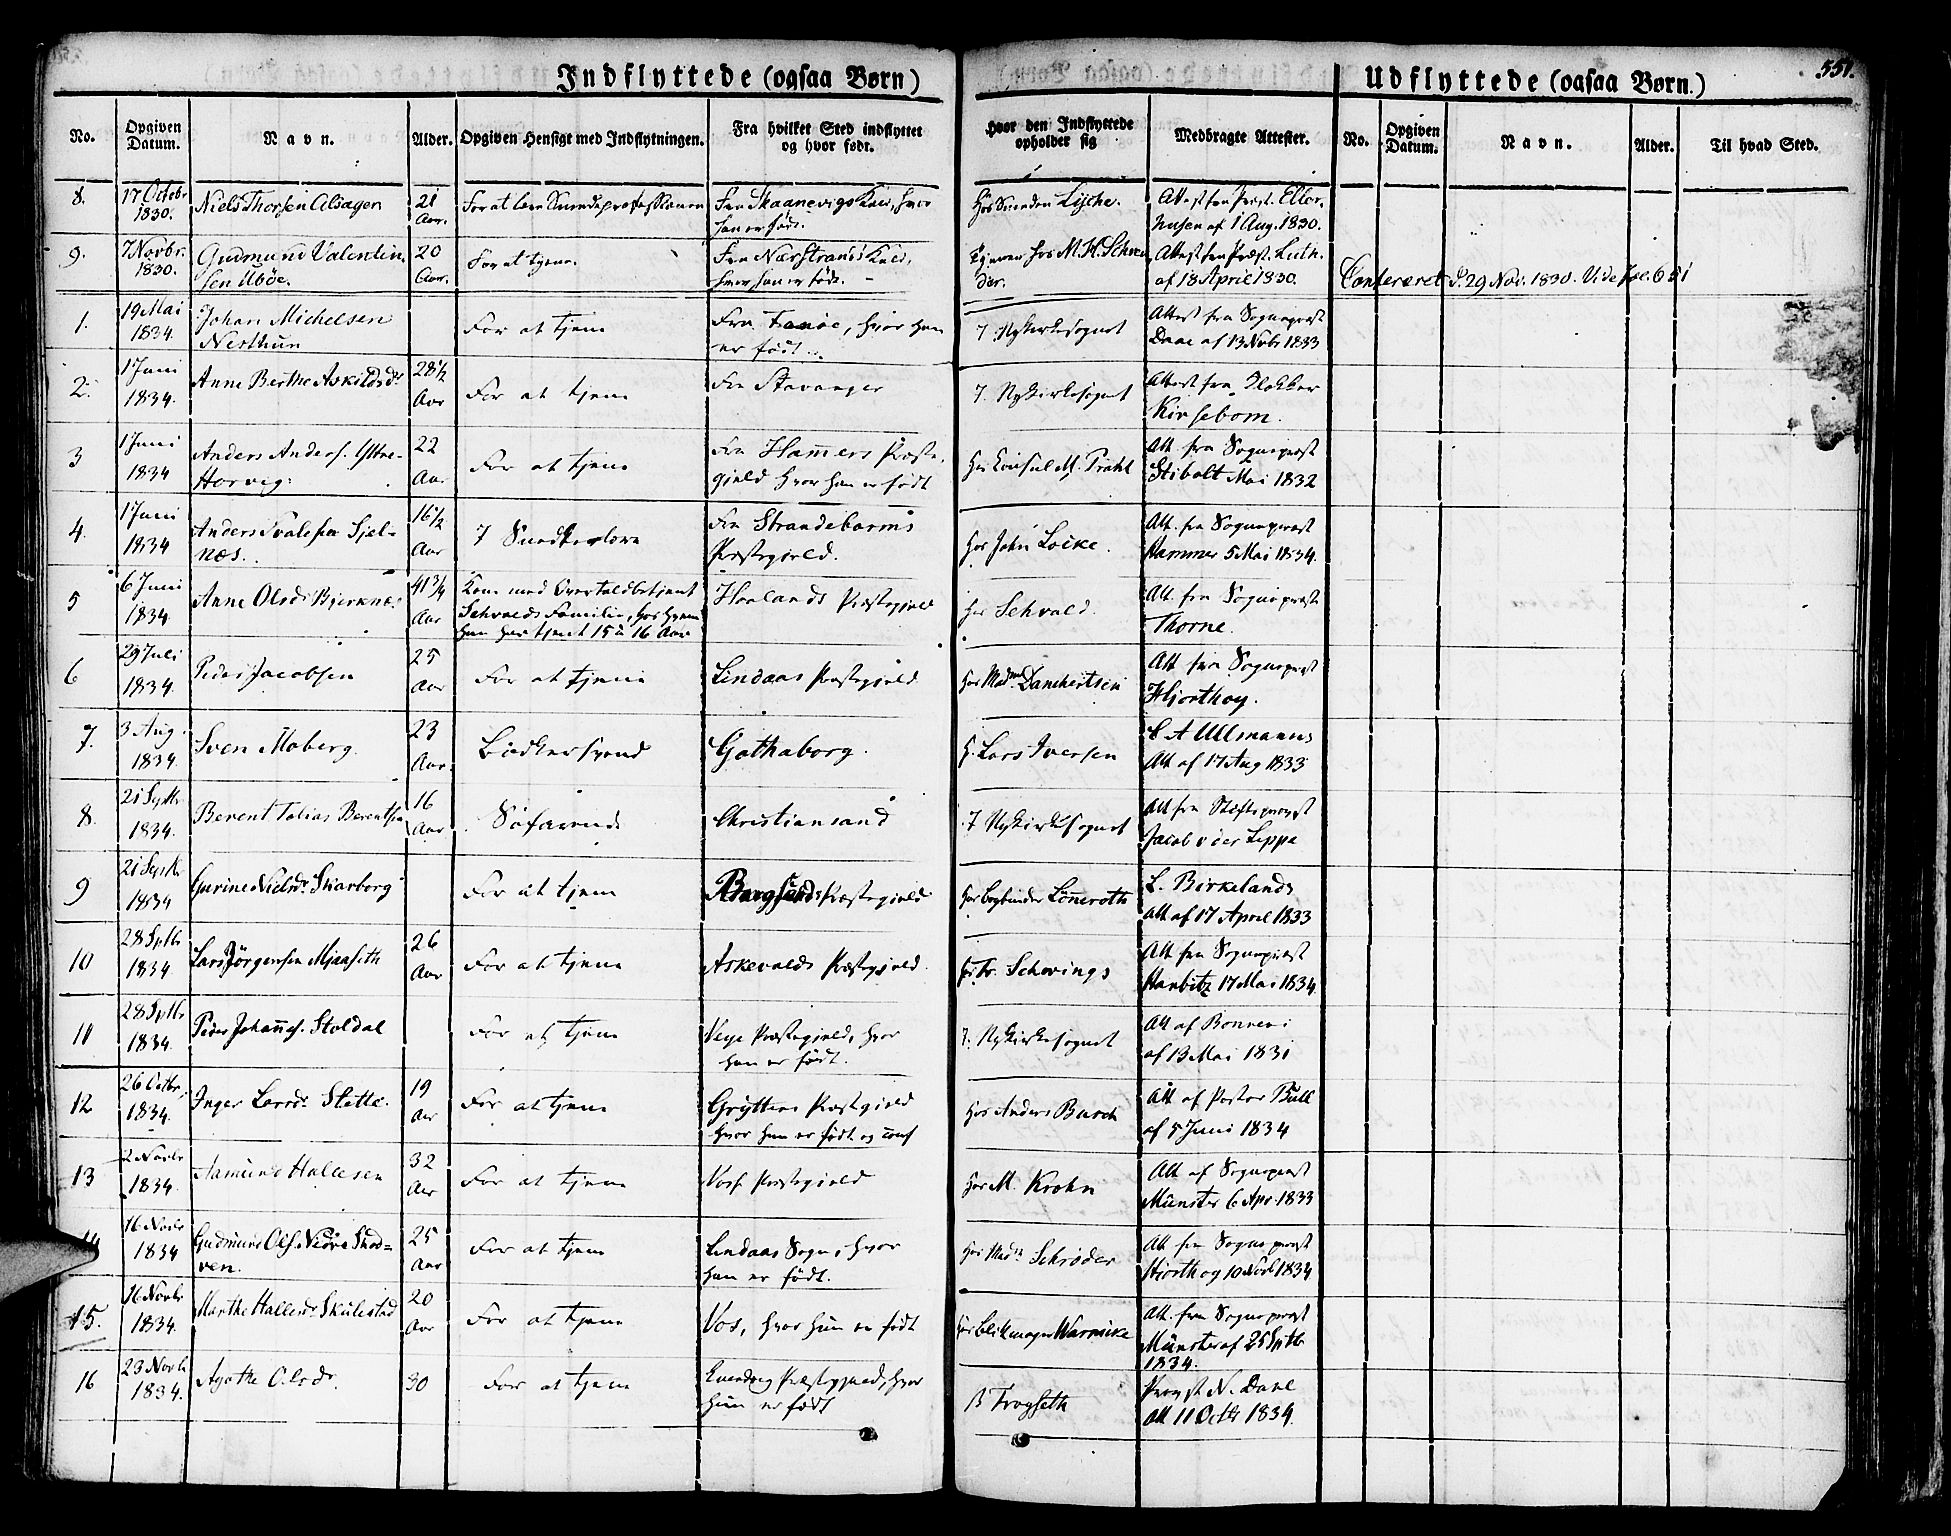 551.
Indflyttede (ogsaa Børn)
Udflyttede (ogsaa Børn.)
No. Opgiven Datum. Navn. Alder. Opgiven Hensigt med Indflytningen. Fra hvilket Sted indflyttet og hvor født. Hvor den Indflyttede opholder sig Medbragte Attester. No. Opgiven Datum. Navn. Alder. Til hvad Sted.
8. 17 Octobr 1830. Niels Thorsen Alsager 21 Aar. For at lære Fra Skaanevigs hvor han er født. Hos Lyche. Attest fra Præst. af 1 Aug. 1830.
9. 7 Novbr. 1830. Gudmund Valentinsen Ubøe. 20 Aar. For at tjene. Fra Nærstrands hvor han er født. Tjener hos M. K. Attest fra Præst. Luth. af 18 April 1830. d. 29 Nov. 1830. Vide Fol. 651
1. 19 Mai 1834. Johan Michelsen Nesthun For at tjene Fra hvor han er født. I Nykirkesognet Attest fra Sognepræst Daae af 13 Novbr 1833
2. 1 Juni 1834. Anne Berthe Askildsdr 28½ Aar For at tjene Fra Stavanger I Nykirkesognet Attest fra Klokker Kirsebom.
3 1 Juni 1834 Anders Anders. Yttre-Horvig. 22 Aar For at tjene Fra Hammers Præstegjeld hvor han er født Hos Consul M. Prahl Att. fra Sognepræst Stibolt Mai 1832
4. 1 Juni 1834 Anders Sjelnæs. 16½ Aar I Snedkerlære Fra Strandebarms Præstegjeld. Hos John Locke. Att. fra Sognepræst Hammer 5 Mai 1834.
5 6 Juni 1834. Anne Olsdr Bjerknæs 41¾ Aar Kom med Overtoldbetjent Sehvalds Familie, hos hvem hun har tjent 15 à 16 Aar Haalands Præstegjeld Hos Sehvald. Att. fra Sognepræst Thorne.
6 29 Juli 1834. Peder Jacobsen 25 Aar For at tjene Lindaas Præstegjeld Hos Mad. Danckertsen Att. fra Sognepræst Hjorthoy.
7. 3 Aug. 1834. Sven Moberg. 23 Aar. Bødkersvend Gøthaborg. H. Lars Iversen C A Ullmanns Att af 17 Aug 1833
8. 21 Septbr 1834. Berent Tobias Berentsen 16 Aar Søfarende Christiansand I Nykirkesognet Att fra Stiftsprovst Jacob v der Lippe
9 21 Septbr 1834 Gurine Nielsdr. Skarborg For at tjene Præstegjeld Hos Bogbinder Lönneroth L. Birkelands Att af 17 April 1833
10 28 Septbr 1834. Lars Jörgensen Mjaaseth 26 Aar For at tjene Askevolds Præstegjeld. Hos Fr. Schovings Att. fra Sognepræst Harbitz 17 Mai 1834
11 28 Septbr 1834. Peder Johannes. Stoldal For at tjene Præstegjeld, hvor han er født. I. Nykirkesognet Att af Bonnevi af 13 Mai 1831
12 26 Octbr. 1834. Inger Larsdr Slette. 19 Aar For at tjene Gryttens Præstegjeld hvor hun er født og conf Hos Anders Busch Att af Pastor Bull af 5 Juni 1834
13 2 Novbr 1834. Aamund Hallesen 32 Aar For at tjene Voss Præstegjeld Hos M. Krohn Att af Sognepræst Münster 6 Apr. 1833
14 16 Novbr 1834 Gudmund Ols. Nedre Skodven. 25 Aar For at tjene Lindaas Sogn, hvor han er født. Hos Madm Schrøder Att. fra Sognepræst Hjorthoy 10 Novbr 1834
15. 16 Novbr 1834. Marthe Hallesdr Skulestad 20 Aar For at tjene Vos, hvor hun er født Hos Blikmager Warnicke Att. fra Sognepræst Münster af 25 Septbr 1834.
16 23 Novbr 1834. Agathe Olsdr. 30 For at tjene Præstegjeld, hvor hun er født Trogseth Provst N. Dahl Att 11 Octbr 1834.